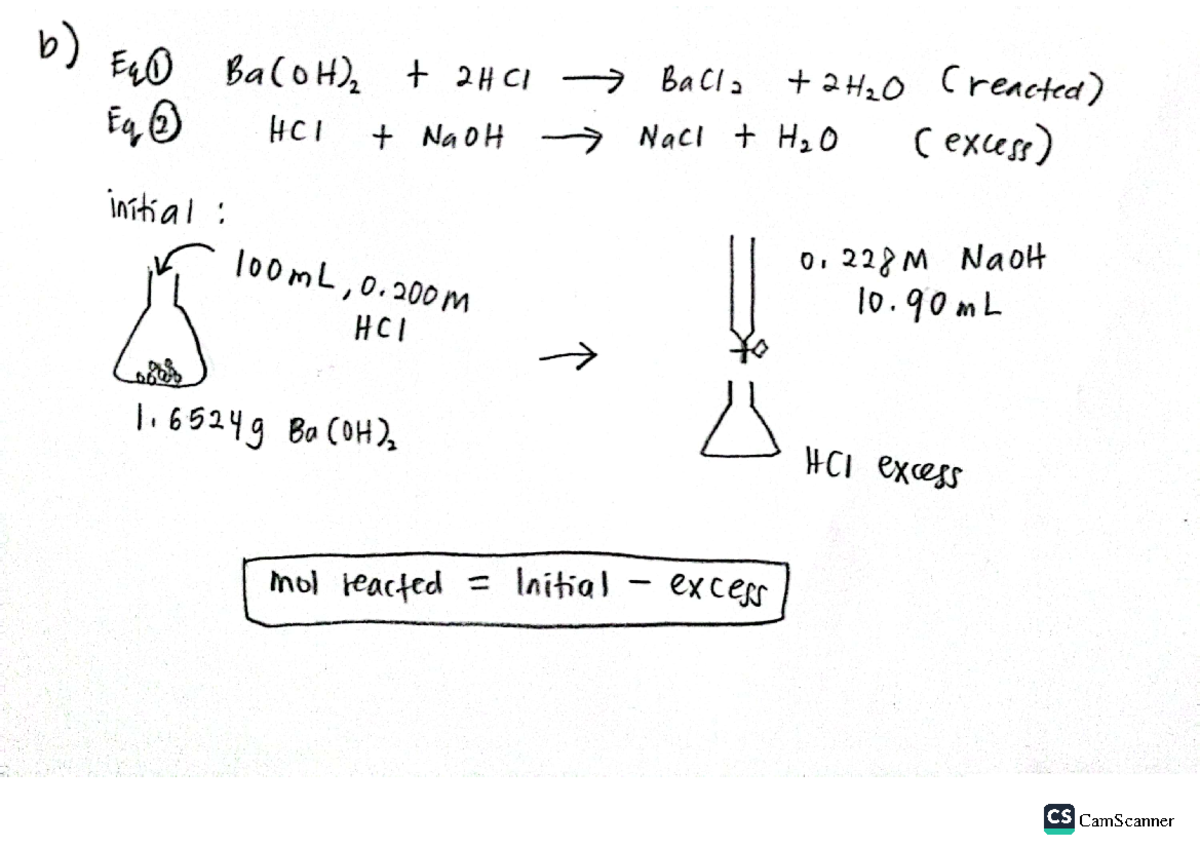 b)
Eq① Ba(OH)₂ + 2HCl → BaCl₂ + 2H₂O (reacted)
Eq② HCl + NaOH → NaCl + H₂O (excess)
initial :
100mL, 0.200M
HCl
1.6524g Ba(OH)₂
0.228M NaOH
10.90mL
HCl excess
mol reacted = Initial - excess
CS CamScanner